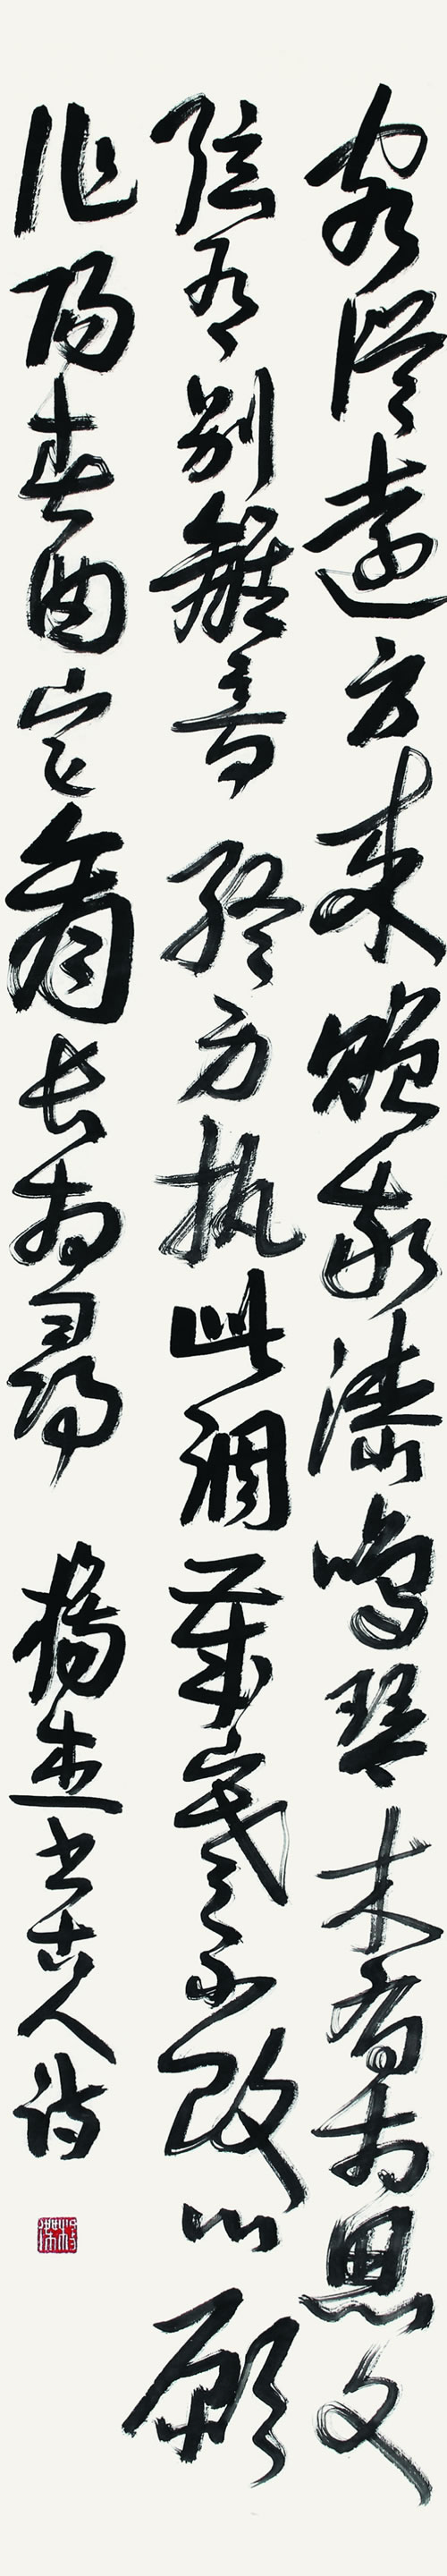 客從遠方來贈我漆鳴琴木有相思文
弦有別離音終身執此調歲寒不改心願
作陽春曲宮商長相尋 楊书古人詩